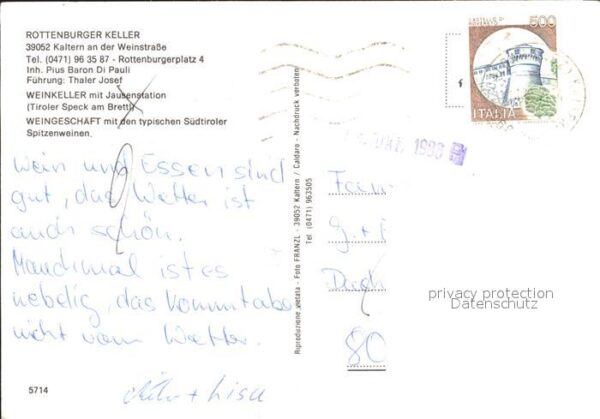 ROTTENBURGER KELLER
39052 Kaltern an der Weinstraße
Tel. (0471) 96 35 87 - Rottenburgerplatz 4
Inh. Pius Baron Di Pauli
Führung: Thaler Josef
WEINKELLER mit Jausenstation
(Tiroler Speck am Brettl)
WEINGESCHÄFT mit den typischen Südtiroler
Spitzenweinen.
Wein und Essen sind
gut, das Wetter ist
auch schön.
Manchmal ist es
nebelig, das kommt aber
nicht vom Wetter.
+ Lisa
5714
Riproduzione vietata - Foto FRANZL - 39052 Kaltern / Caldaro - Nachdruck verboten
Tel (0471) 963505
CASTELLO DI
ROVERETO
500
ITALIA
Fam
80
privacy protection
Datenschutz